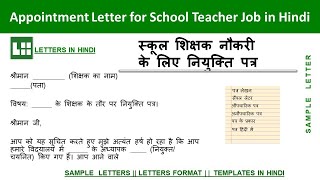 Appointment Letter for School Teacher Job in Hindi
LETTERS IN HINDI
स्कूल शिक्षक नौकरी
के लिए नियुक्ति पत्र
श्रीमान __________ (शिक्षक का नाम)
__________(पता)
विषय: ______ के शिक्षक के तौर पर नियुक्ति पत्र।
श्रीमान जी,
आप को यह सूचित करते हुए मुझे अत्यंत हर्ष हो रहा है कि आप
हमारे विद्यालय में ______ के अध्यापक ____ (नियुक्त/
चयनित) किए गए हैं। आप आने वाले
पत्र लेखन
औपचारिक पत्र
अनौपचारिक पत्र
पत्र के प्रकार
पत्र हिंदी में
SAMPLE LETTER
SAMPLE LETTERS || LETTERS FORMAT || TEMPLATES IN HINDI